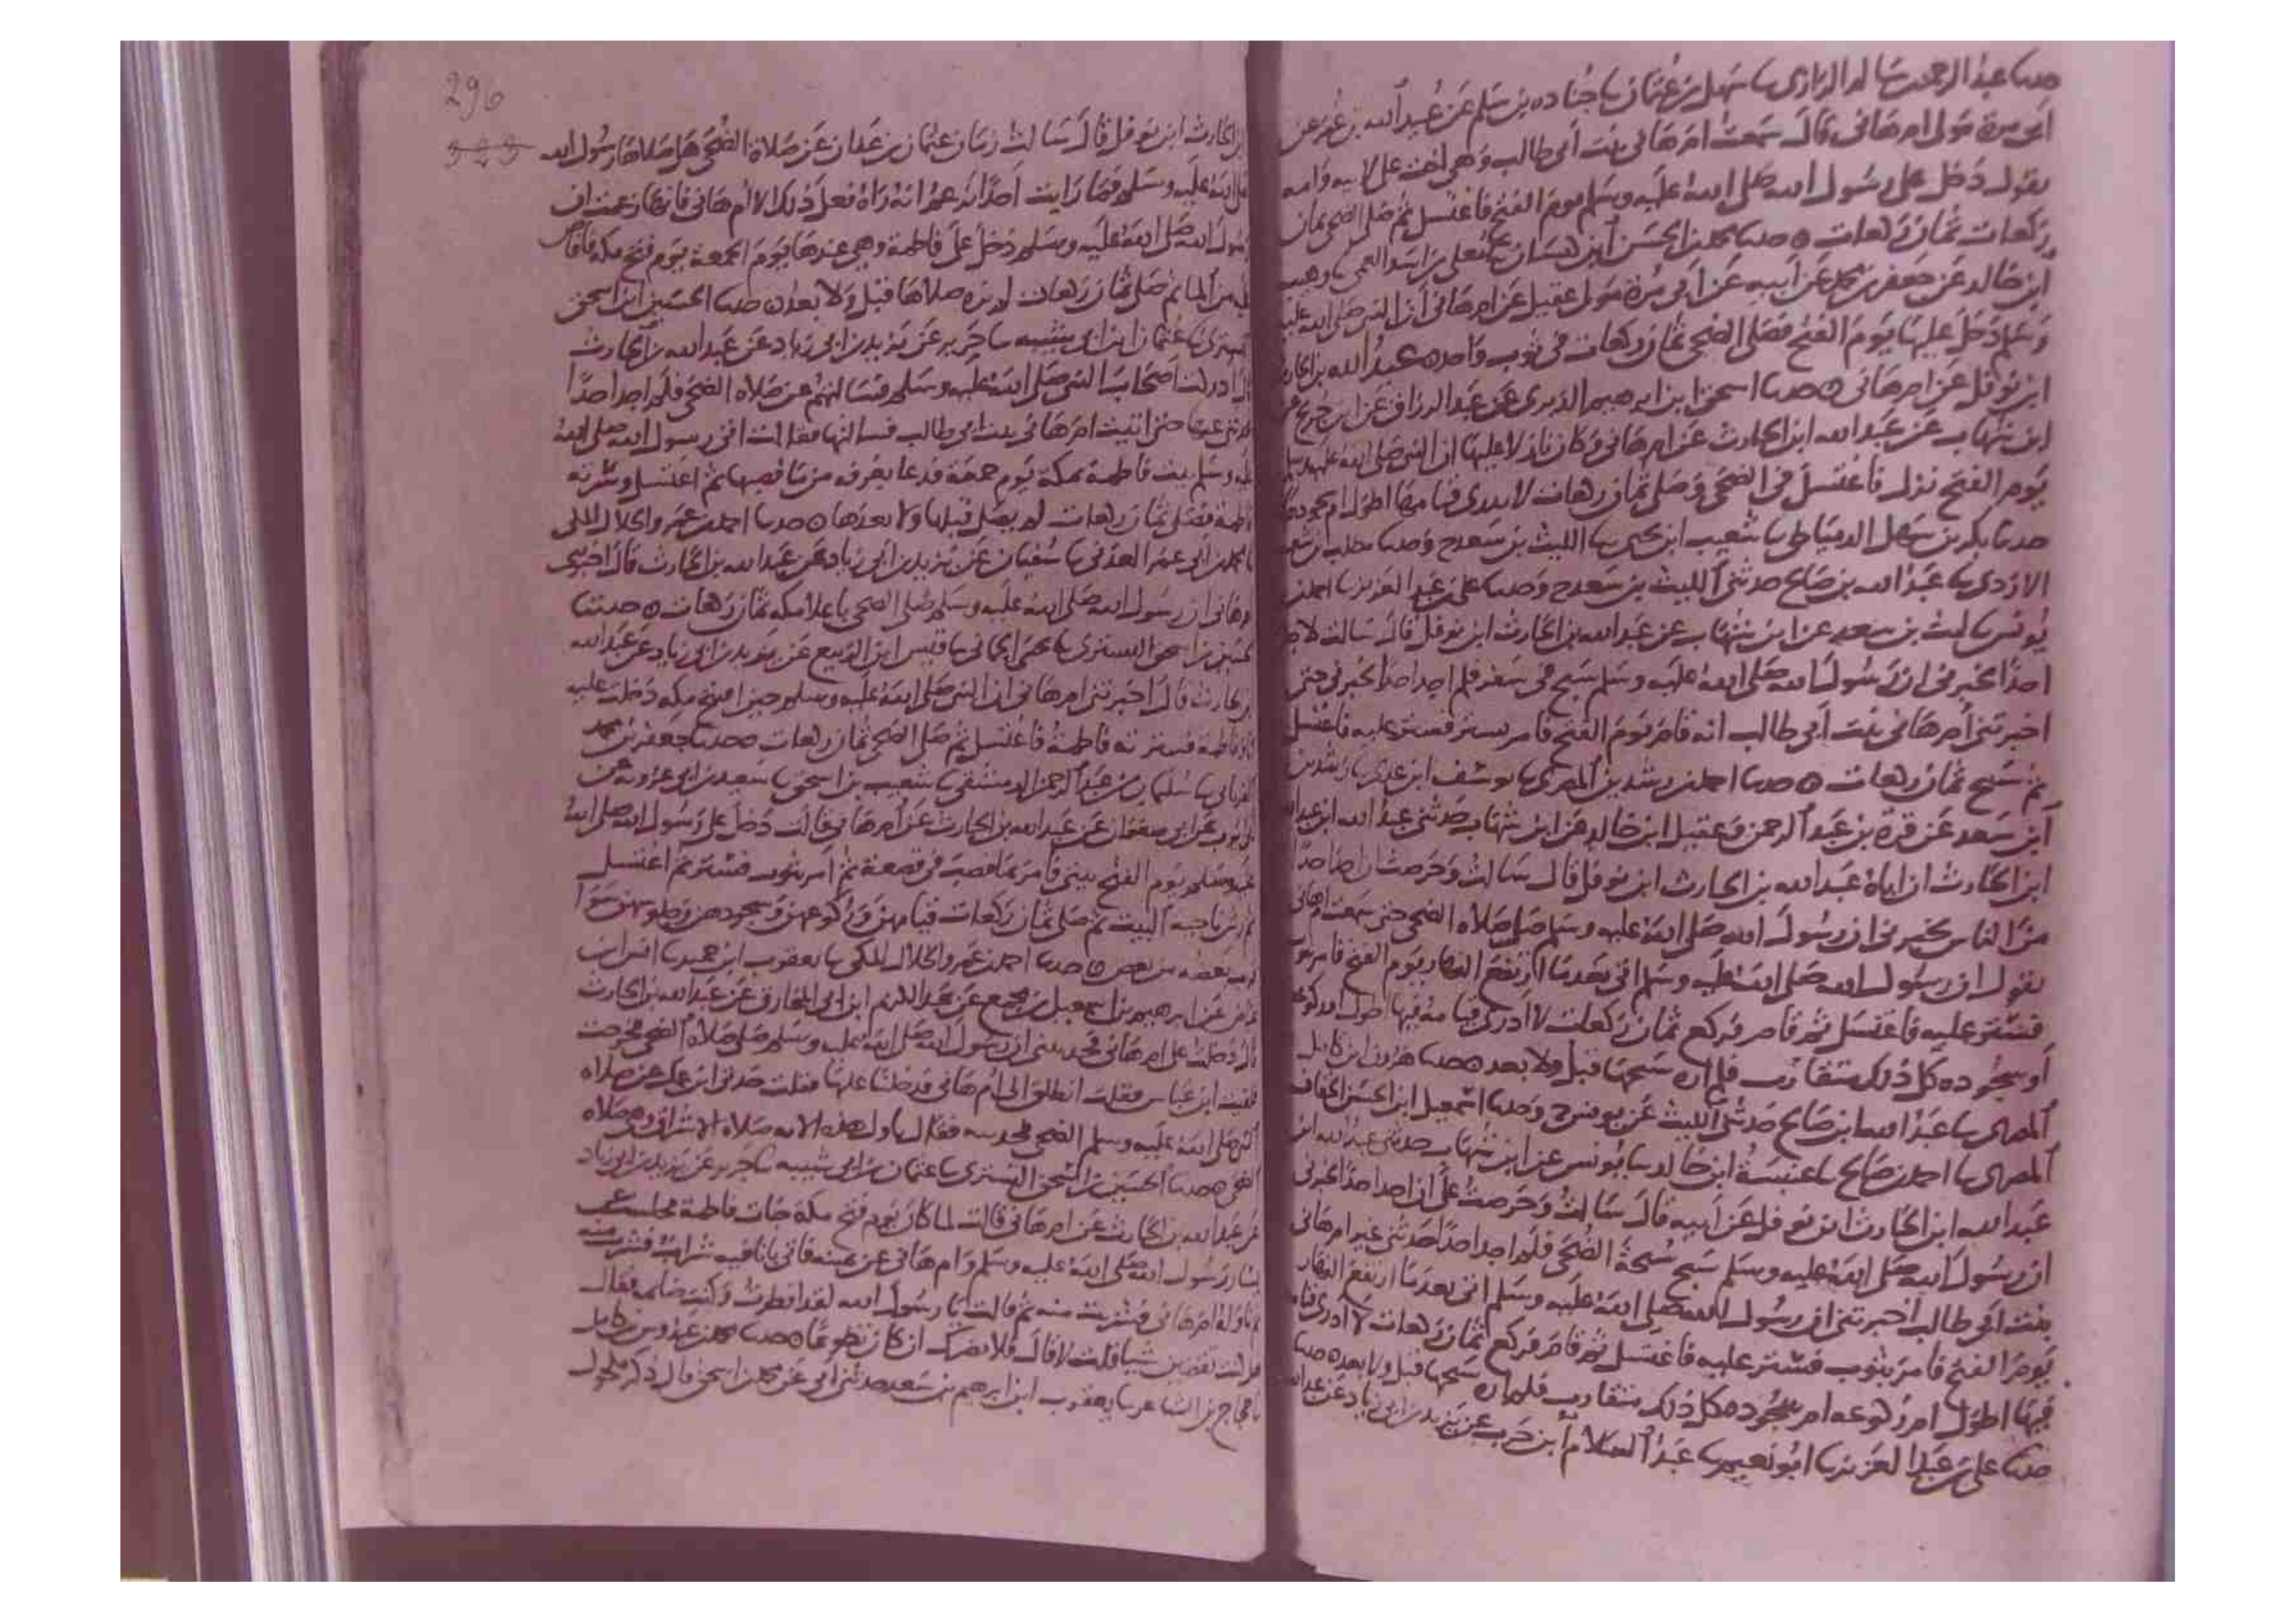 حدثنا عبد الرحمن بن سالم الرازي ثنا سهل بن عثمان ثنا جناده بن سلم عن عبيد الله بن عمر عن
ابي مرة مولى ام هانى قال سمعت ام هانى بنت ابي طالب وهى اخت على لابيه وامه
يقول دخل على رسول الله صلى الله عليه وسلم يوم الفتح فاغتسل ثم صلى الضحى ثمان
ركعات ثمان ركعات ۞ حدثنا محمد بن الحسن ابن كيسان ثنا معلى بن اسد العمى ثنا وهيب
ابن خالد عن جعفر بن محمد عن ابيه عن ابي مرة مولى عقيل عن ام هانى ان النبي صلى الله عليه
وسلم دخل عليها يوم الفتح فصلى الضحى ثمان ركعات في ثوب واحد ۞ عبد الله بن الحارث
ابن نوفل عن ام هانى ۞ حدثنا اسحق ابن ابرهيم الدبرى عن عبد الرزاق عن ابن جريج عن
ابن شهاب عن عبد الله ابن الحارث عن ام هانى وكان نازلا عليها ان النبي صلى الله عليه وسلم
يوم الفتح نزل فاغتسل في الضحى وصلى ثمان ركعات لا يدرى قيامها اطول ام سجودها
حدثنا بكر بن سهل الدمياطي ثنا شعيب ابن يحيى ثنا الليث بن سعد ح وحدثنا مطلب بن شعيب
الازدى ثنا عبد الله بن صالح حدثني الليث بن سعد ح وحدثنا على بن عبد العزيز ثنا احمد بن
يونس ثنا ليث بن سعد عن ابن شهاب عن عبد الله بن الحارث ابن نوفل قال سالت لاجد
احدا يخبرني ان رسول الله صلى الله عليه وسلم سبح في سفر فلم اجد احدا يخبرني حتى
اخبرتني ام هانى بنت ابي طالب انه قام يوم الفتح فامر بستر فستر عليه فاغتسل
ثم سبح ثمان ركعات ۞ حدثنا احمد بن رشدين المصرى ثنا يوسف ابن عدى ثنا رشدين
ابن سعد عن قرة بن عبد الرحمن وعقيل ابن خالد عن ابن شهاب حدثني عبد الله ابن عبد الله
ابن الحارث ان اباه عبد الله بن الحارث ابن نوفل قال سالت وحرصت ان اجد احدا
من الناس يخبرني ان رسول الله صلى الله عليه وسلم صلى صلاة الضحى حتى سمعت ام هانى
تقول ان رسول الله صلى الله عليه وسلم اتى بعد ما ارتفع النهار يوم الفتح فامر بثوب
فستر عليه فاغتسل ثم قام فركع ثمان ركعات لا ادرى قيامه فيها اطول ام ركوعه
او سجوده كل ذلك متقارب فلم اره سبحها قبل ولا بعد ۞ حدثنا هرون ابن كامل
المصرى ثنا عبد الله ابن صالح حدثني الليث عن يونس ح وحدثنا اسمعيل ابن الحسن الخفاف
المصرى ثنا احمد بن صالح ثنا عنبسة ابن خالد ثنا يونس عن ابن شهاب حدثني عبد الله ابن
عبد الله ابن الحارث ابن نوفل عن ابيه قال سالت وحرصت على ان اجد احدا يخبرني
ان رسول الله صلى الله عليه وسلم سبح سبحة الضحى فلم اجد احدا حدثني غير ام هانى
بنت ابي طالب اخبرتني ان رسول الله صلى الله عليه وسلم اتى بعد ما ارتفع النهار
يوم الفتح فامر بثوب فستر عليه فاغتسل ثم قام فركع ثمان ركعات لا ادرى قيامه
فيها اطول ام ركوعه ام سجوده كل ذلك متقارب فلم اره سبحها قبل ولا بعد ۞ حدثنا
حدثنا على بن عبد العزيز ثنا ابو نعيم ثنا عبد السلام ابن حرب عن يزيد بن ابي زياد عن عبد الله
296
323
بن الحارث ابن نوفل قال سالت زمان عثمان بن عفان عن صلاة الضحى هل صلاها رسول الله
صلى الله عليه وسلم فما رايت احدا يزعم انه راه فعل ذلك الا ام هانى فانها زعمت ان
رسول الله صلى الله عليه وسلم دخل على فاطمة وهى عندها يوم الجمعة يوم فتح مكه فافاض
عليه من الماء ثم صلى ثمان ركعات لم تره صلاها قبل ولا بعد ۞ حدثنا الحسين ابن اسحق
التسترى ثنا عثمان ابن ابي شيبه ثنا جرير عن يزيد بن ابي زياد عن عبد الله بن الحارث
قال ادركت اصحاب النبي صلى الله عليه وسلم فسالتهم عن صلاة الضحى فلم اجد احدا
يحدثني عنها حتى اتيت ام هانى بنت ابي طالب فسالتها فقالت اتى رسول الله صلى الله
عليه وسلم بيت فاطمة بمكة يوم جمعة فدعا بغرفه من ماء فصبها ثم اغتسل وسترته
فاطمة فصلى ثمان ركعات لم يصل قبلها ولا بعدها ۞ حدثنا احمد بن عمرو الخلال المكى
ثنا محمد بن ابي عمر العدني ثنا سفيان عن يزيد بن ابي زياد عن عبد الله بن الحارث قال اخبرتني
ام هانى ان رسول الله صلى الله عليه وسلم صلى الضحى باعلا مكه ثمان ركعات ۞ حدثنا
الحسين بن اسحق التسترى ثنا يحيى الحماني ثنا قيس ابن الربيع عن يزيد بن ابي زياد عن عبد الله
بن الحارث قال اخبرتني ام هانى ان النبي صلى الله عليه وسلم حين افتتح مكه دخلت عليه
فاطمة فسترته فاطمة فاغتسل ثم صلى الضحى ثمان ركعات ۞ حدثنا جعفر بن محمد
الفريابي ثنا سليمان بن عبد الرحمن الدمشقي ثنا شعيب بن اسحق ثنا سعيد بن ابي عروبه عن
ايوب عن ابي صفوان عن عبد الله بن الحارث عن ام هانى قالت دخل على رسول الله صلى الله
عليه وسلم يوم الفتح بيتي فامر بماء فصب في قصعة ثم امر بثوب فستر ثم اغتسل
ثم رش ناحية البيت ثم صلى ثمان ركعات قيامهن وركوعهن وسجودهن وجلوسهن سواء
قريب بعضه من بعض ۞ حدثنا احمد بن عمرو الخلال المكى ثنا يعقوب ابن حميد ثنا انس ابن
عياض عن ابرهيم بن اسمعيل بن مجمع عن عبد الكريم ابن ابي المخارق عن عبد الله بن الحارث
قال دخلت على ام هانى فحدثتني ان رسول الله صلى الله عليه وسلم صلى صلاة الضحى فخرجت
فلقيت ابن عباس فقلت انطلق الى ام هانى فدخلنا عليها فقلت حدثي ابن عمك عن صلاة
النبي صلى الله عليه وسلم الضحى فحدثته فقال تاول هذه الايه صلاة الاشراق وهى صلاة
الضحى ۞ حدثنا الحسين بن اسحق التسترى ثنا عثمان بن ابي شيبه ثنا جرير عن يزيد بن ابي زياد
عن عبد الله بن الحارث عن ام هانى قالت لما كان يوم فتح مكة جات فاطمة فجلست عن
يسار رسول الله صلى الله عليه وسلم وام هانى عن يمينه فاتي باناء فيه شراب فشرب منه
ثم ناوله ام هانى فشربت منه ثم قالت يا رسول الله لقد افطرت وكنت صايمه فقال
اكنت تقضين شيا قلت لا قال فلا يضرك ان كان تطوعا ۞ حدثنا محمد بن عبدوس بن كامل
ثنا حجاج بن الشاعر ثنا يعقوب ابن ابرهيم بن سعد حدثني ابي عن محمد بن اسحق قال ذكر مكحول